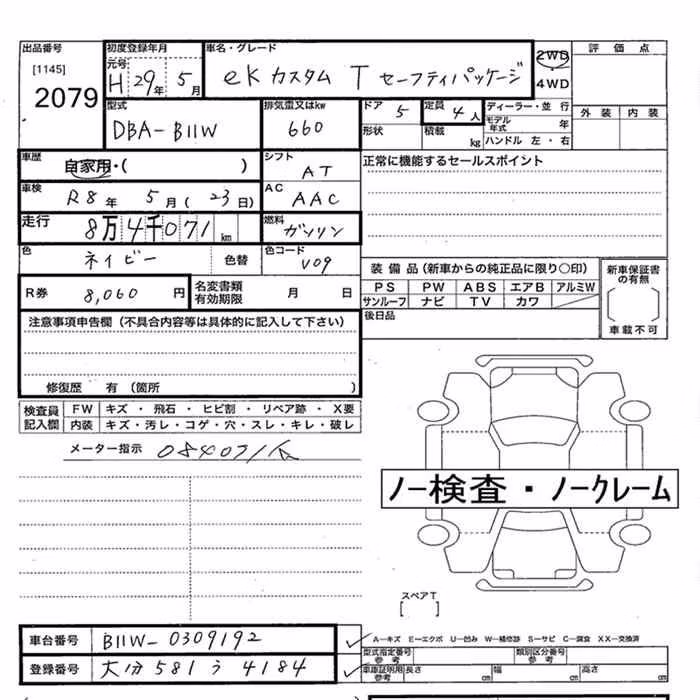 出品番号 初度登録年月 車名・グレード 2WD 評価点
[1145] 元号 H 29年 5月 eKカスタム T セーフティパッケージ 4WD
2079
型式 排気量又はkw ドア 5 定員 4人 ディーラー・並行 外装 内装
DBA-B11W 660 形状 積載 kg モデル年式 年
ハンドル 左・右
車歴 自家用・( ) シフト AT 正常に機能するセールスポイント
車検 R8年 5月(23日) AC AAC
走行 8万4千071km 燃料 ガソリン
色 ネイビー 色替 色コード V09
装備品(新車からの純正品に限り〇印) 新車保証書の有無
R券 8,060円 名変書類有効期限 月 日
PS PW ABS エアB アルミW
サンルーフ ナビ TV カワ
車載不可
注意事項申告欄(不具合内容等は具体的に記入して下さい) 後日品
修復歴 有(箇所 )
検査員記入欄 FW キズ・飛石・ヒビ割・リペア跡・X要
内装 キズ・汚レ・コゲ・穴・スレ・キレ・破レ
メーター指示 084071
ノー検査・ノークレーム
スペアT
[ ]
車台番号 B11W-0309192
A-キズ E-エクボ U-凹み W-補修跡 S-サビ C-腐食 XX-交換済
型式指定番号 参考 類別区分番号 参考
登録番号 大分 581 う 4184
車庫証明用 参考 長さ cm 幅 cm 高さ cm